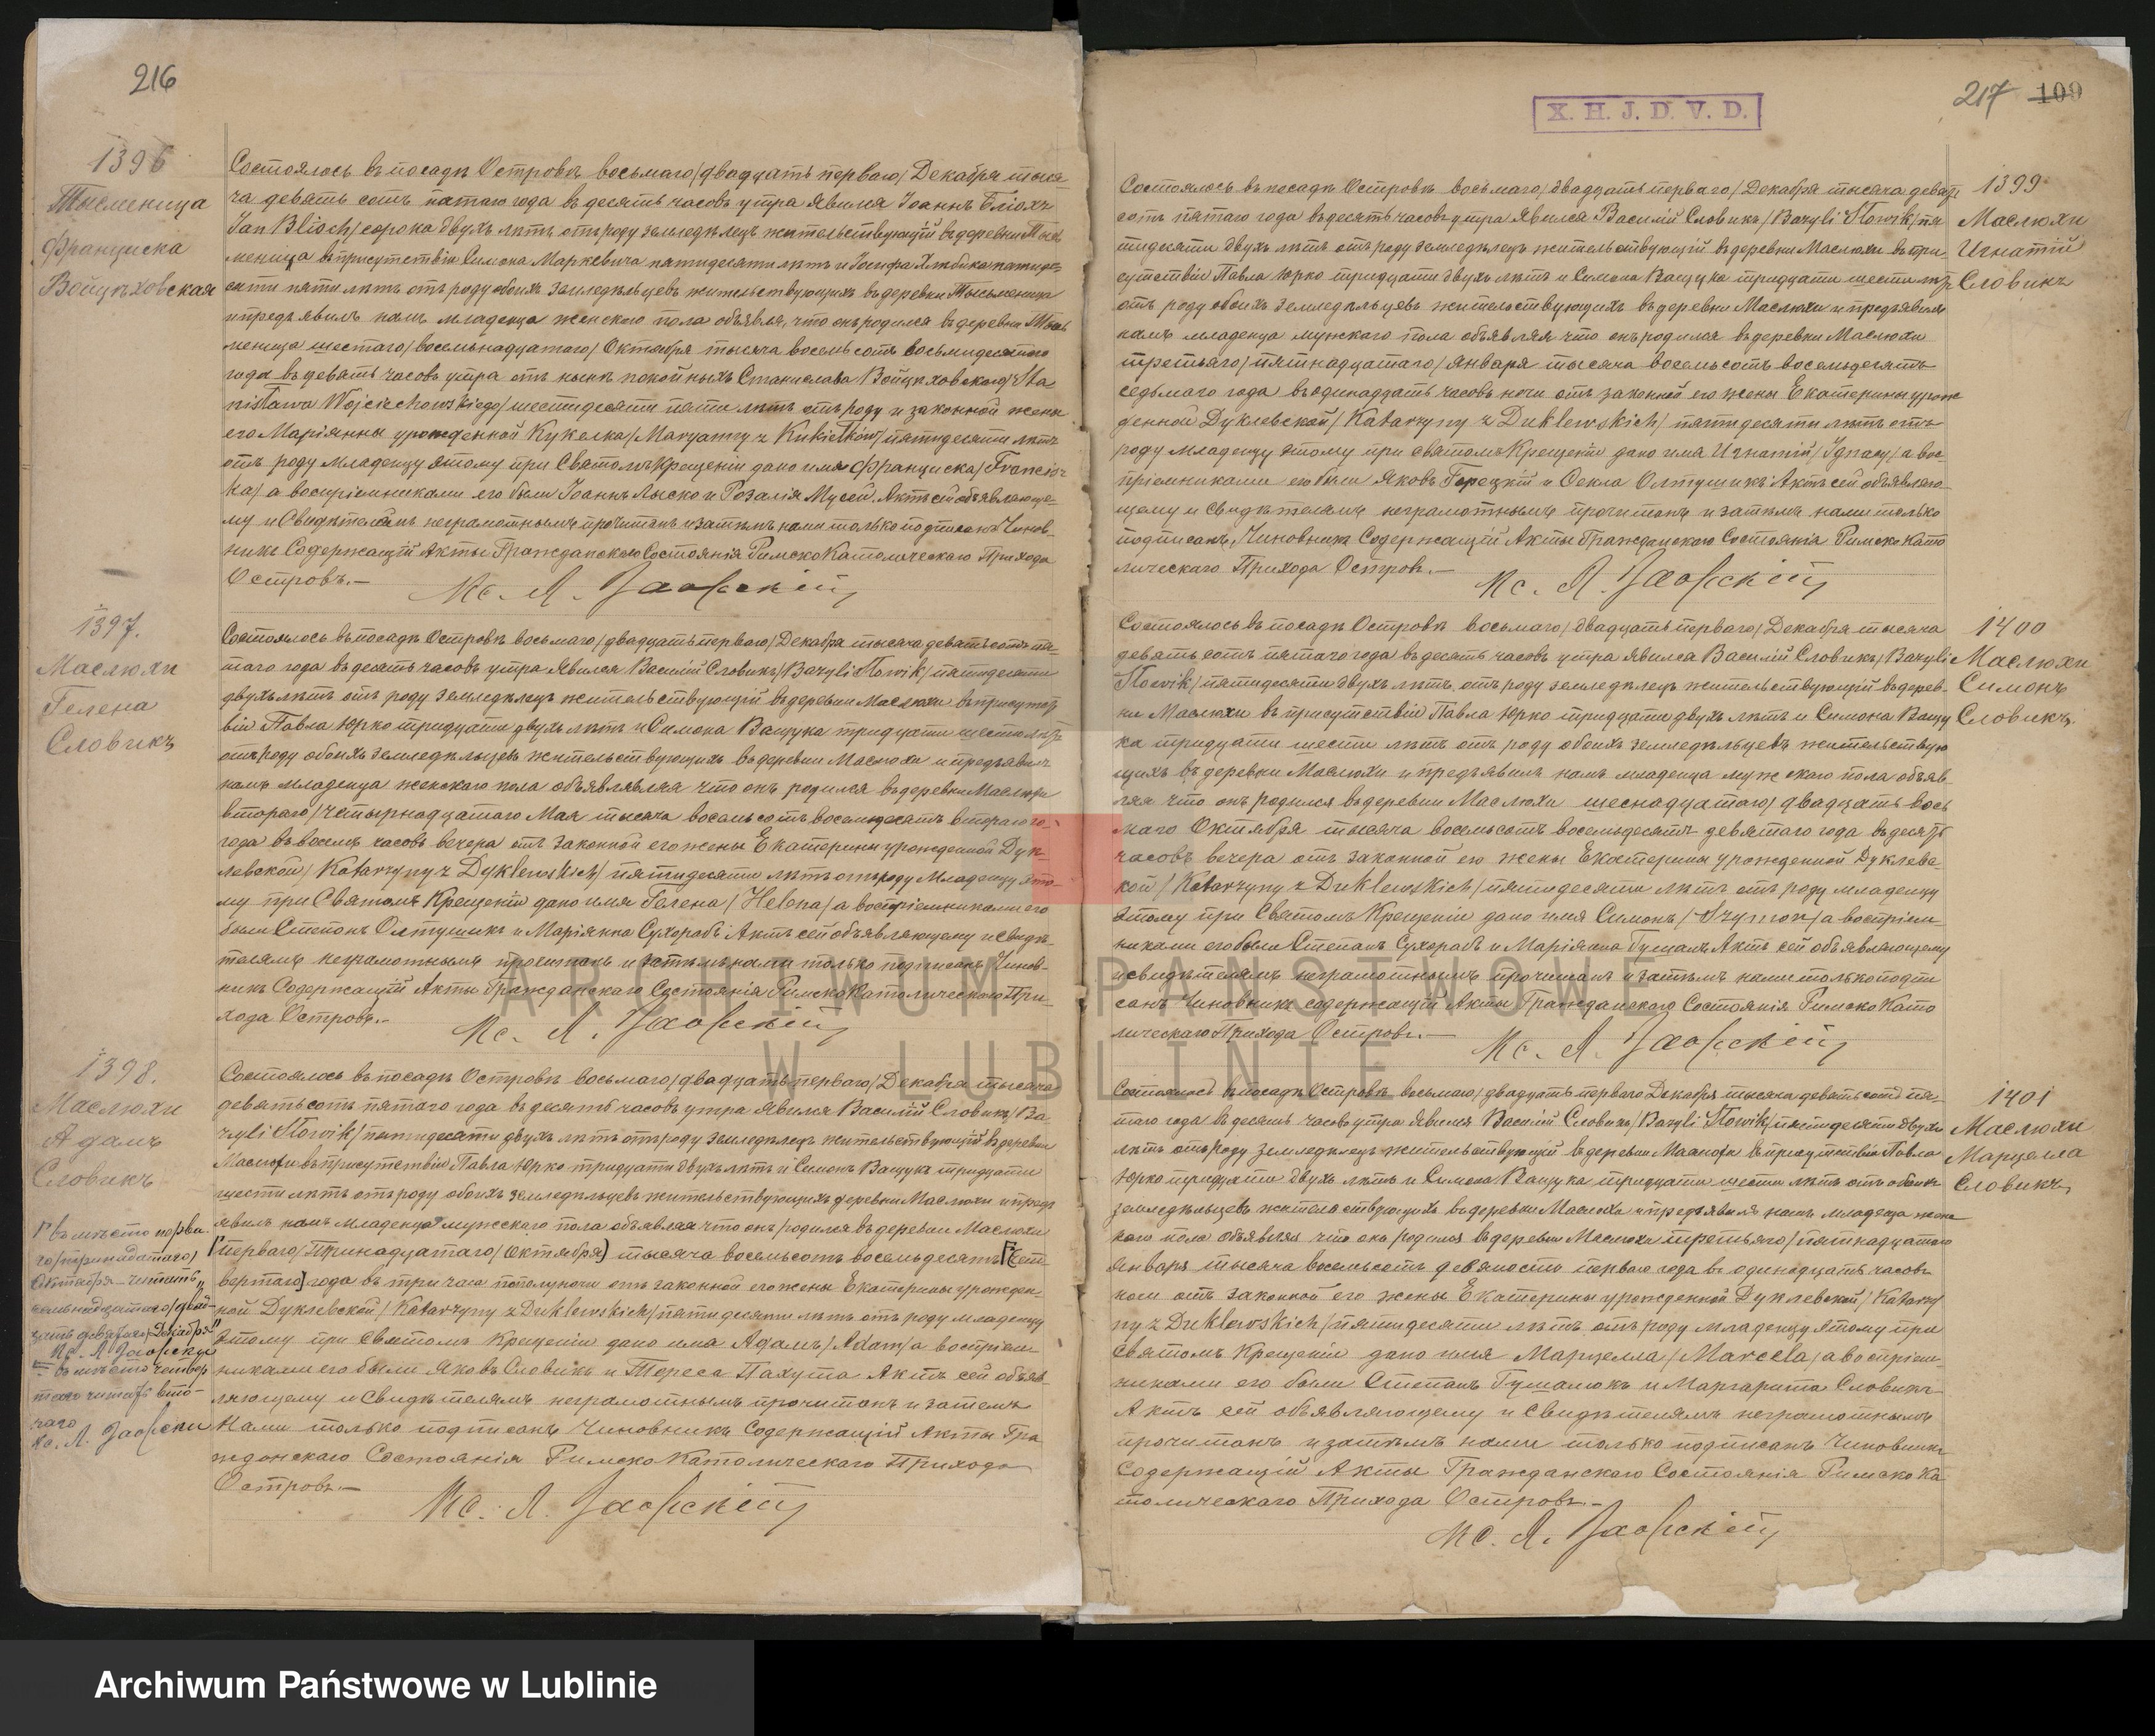 216
1396
Тысменица
Франциска
Войцѣховская
Состоялось въ посадѣ Островѣ восьмаго /двадцать перваго/ Декабря тыся-
ча девять сотъ пятаго года въ десять часовъ утра явился Іоаннъ Бліохъ
/Jan Blioch/ сорока двухъ лѣтъ отъ роду земледѣлецъ жительствующій въ деревни Тыс
меница въ присутствіи Симона Маркевича пятидесяти лѣтъ и Іосифа пятиде-
сяти пяти лѣтъ отъ роду обоихъ земледѣльцевъ жительствующихъ въ деревни Тысьменица
и предъявилъ намъ младенца женскаго пола объявляя, что онъ родился въ деревни Тысь
меница шестаго /восемьнадцатаго/ Октября тысяча восемь сотъ восьмидесятого
года въ девять часовъ утра отъ нынѣ покойныхъ Станислава Войцѣховскаго /Sta
nisława Wojciechowskiego/ шестидесяти пяти лѣтъ отъ роду и законной жены
его Маріянны урожденной Кукелка /Maryanny z Kukiełków/ пятидесяти лѣтъ
отъ роду Младенцу этому при Святомъ Крещеніи дано имя Франциска /Francisz
ka/ а воспріемниками его были Іоаннъ Лыско и Розалія Мусей. Актъ сей объявляюще-
му и Свидѣтелямъ неграмотнымъ прочитанъ и затѣмъ нами только подписанъ Чинов-
никъ Содержащій Акты Гражданскаго Состоянія Римско Католическаго Прихода
Островъ.—
Кс. А. Заорскій
1397.
Маслюхи
Гелена
Словикъ
Состоялось въ посадѣ Островѣ восьмаго /двадцать перваго/ Декабря тысяча девять сотъ пя-
таго года въ десять часовъ утра явился Василій Словикъ /Bazyli Słowik/ пятидесяти
двухъ лѣтъ отъ роду земледѣлецъ жительствующій въ деревни Маслюхи въ присутст
віи Павла Юрко тридцати двухъ лѣтъ и Симона Ващука тридцати шести лѣтъ
отъ роду обоихъ земледѣльцевъ жительствующихъ въ деревни Маслюхи и предъявилъ
намъ младенца женскаго пола объявлявляя что онъ родился въ деревни Маслюхи
втораго /четырнадцатаго Мая тысяча восемь сотъ восемьдесятъ втораго го-
года въ восемь часовъ вечера отъ законной его жены Екатерины урожденной Дук-
левской /Katarzyny z Dyklewskich/ пятидесяти лѣтъ отъ роду Младенцу это-
му при Святомъ Крещеніи дано имя Гелена /Helena/ а воспріемниками его
были Степанъ Олтушикъ и Маріянна Сухорабъ Актъ сей объявляющему и свидѣ-
телямъ неграмотнымъ прочитанъ и затѣмъ нами только подписанъ Чинов-
никъ Содержащій Акты Гражданскаго Состоянія Римско Католическаго При-
хода Островъ.—
Кс. А. Заорскій
1398.
Маслюхи
Адамъ
Словикъ
Состоялось въ посадѣ Островѣ восьмаго /двадцать перваго/ Декабря тысяча
девять сотъ пятаго года въ десять часовъ утра явился Василій Словикъ /Ba-
zyli Słowik/ пятидесяти двухъ лѣтъ отъ роду земледѣлецъ жительствующій въ деревни
Маслюхи въ присутствіи Павла Юрко тридцати двухъ лѣтъ и Симона Ващука тридцати
шести лѣтъ отъ роду обоихъ земледѣльцевъ жительствующихъ деревни Маслюхи и предъ
явилъ намъ младенца мужескаго пола объявляя что онъ родился въ деревни Маслюхи
перваго /Тринадцатаго/ Октября] тысяча восемьсотъ восемьдесятъ [чет-
вертаго] года въ три часа пополуночи отъ законной его жены Екатерины урожден-
ной Дуклевской /Katarzyny z Duklewskich/ пятидесяти лѣтъ отъ роду младенцу
этому при Святомъ Крещеніи дано имя Адамъ /Adam/ а воспріем-
никами его были Яковъ Словикъ и Тереса Пахута Актъ сей объяв-
ляющему и Свидѣтелямъ неграмотнымъ прочитанъ и затемъ
нами только подписанъ Чиновникъ Содержащій Акты Гра
жданскаго Состоянія Римско Католическаго Прихода
Островъ.—
Кс. А. Заорскій
въ мѣсто перва
го /тринадцатаго/
Октября — читать
/двад-
цать девятаго/ Декабря
Кс. А. Заорски
въ мѣсто четвер
таго читать вто-
раго
Кс. А. Заорски
X. H. J. D. V. D.
217 109
1399
Маслюхи
Игнатій
Словикъ
Состоялось въ посадѣ Островѣ восьмаго /двадцать перваго/ Декабря тысяча девять
сотъ пятаго года въ десять часовъ утра явился Василій Словикъ /Bazyli Słowik/ пя
тидесяти двухъ лѣтъ отъ роду земледѣлецъ жительствующій въ деревни Маслюхи въ при
сутствіи Павла Юрко тридцати двухъ лѣтъ и Симона Ващука тридцати шести лѣтъ
отъ роду обоихъ земледѣльцевъ жительствующихъ въ деревни Маслюхи и предъявилъ
намъ младенца мужскаго пола объявляя что онъ родился въ деревни Маслюхи
третьяго /пятнадцатаго/ Января тысяча восемьсотъ восемьдесятъ
седьмаго года въ одинадцать часовъ ночи отъ законной его жены Екатерины урож
денной Дуклевской /Katarzyny z Duklewskich/ пятидесяти лѣтъ отъ
роду младенцу этому при святомъ Крещеніи дано имя Игнатій /Ignacy/ а вос-
пріемниками его были Яковъ Горецкій и Фекла Олтушикъ Актъ сей объявляю-
щему и Свидѣтелямъ неграмотнымъ прочитанъ и затѣмъ нами только
подписанъ, Чиновникъ Содержащій Акты Гражданскаго Состоянія Римско Като
лическаго Прихода Островъ.—
Кс. А. Заорскій
1400
Маслюхи
Симонъ
Словикъ
Состоялось въ посадѣ Островѣ восьмаго /двадцать перваго/ Декабря тысяча
девять сотъ пятаго года въ десять часовъ утра явился Василій Словикъ /Bazyli
Słowik/ пятидесяти двухъ лѣтъ отъ роду земледѣлецъ жительствующій въ дерев-
ни Маслюхи въ присутствіи Павла Юрко тридцати двухъ лѣтъ и Симона Ващу
ка тридцати шести лѣтъ отъ роду обоихъ земледѣльцевъ жительствую
щихъ въ деревни Маслюхи и предъявилъ намъ младенца мужескаго пола объяв-
ляя что онъ родился въ деревни Маслюхи шеснадцатаго /двадцать вось
маго Октября тысяча восемьсотъ восемьдесятъ девятаго года въ десять
часовъ вечера отъ законной его жены Екатерины урожденной Дуклевс-
кой /Katarzyny z Duklewskich/ пятидесяти лѣтъ отъ роду младенцу
этому при Святомъ Крещеніи дано имя Симонъ /Szymon/ а воспріем-
никами его были Степанъ Сухорабъ и Маріянна Гумалъ Актъ сей объявляющему
и свидѣтелямъ неграмотнымъ прочитанъ и затѣмъ нами только подпи
санъ Чиновникъ содержащій Акты Гражданскаго Состоянія Римско Като
лическаго Прихода Островъ.—
Кс. А. Заорскій
1401
Маслюхи
Марцелла
Словикъ
Состоялось въ посадѣ Островѣ восьмаго /двадцать перваго Декабря тысяча девять сотъ пя-
таго года въ десять часовъ утра явился Василій Словикъ /Bazyli Słowik/ пятидесяти двухъ
лѣтъ отъ роду земледѣлецъ жительствующій въ деревни Маслюхи въ присутствіи Павла
Юрко тридцати двухъ лѣтъ и Симона Ващука тридцати шести лѣтъ отъ обоихъ
земледѣльцевъ жительствующихъ въ деревни Маслюхи и предъявилъ намъ младенца женс
каго пола объявляя что онъ родился въ деревни Маслюхи третьяго /пятнадцатаго
Января тысяча восемьсотъ девяносто перваго года въ одинадцать часовъ
ночи отъ законной его жены Екатерины урожденной Дуклевской /Katarzy
ny z Duklewskich/ пятидесяти лѣтъ отъ роду младенцу этому при
Святомъ Крещеніи дано имя Марцелла /Marcela/ а воспріем-
никами его были Степанъ Гумалюкъ и Маргарита Словикъ
Актъ сей объявляющему и Свидѣтелямъ неграмотнымъ
прочитанъ и затѣмъ нами только подписанъ Чиновникъ
Содержащій Акты Гражданскаго Состоянія Римско Ка-
толическаго Прихода Островъ.—
Кс. А. Заорскій
ARCHIWUM PAŃSTWOWE
W LUBLINIE
Archiwum Państwowe w Lublinie